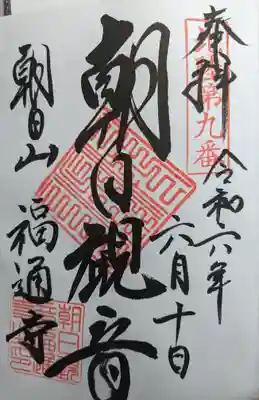 奉拝
第九番
令和六年
六月十日
朝日観音
朝日山
福通寺